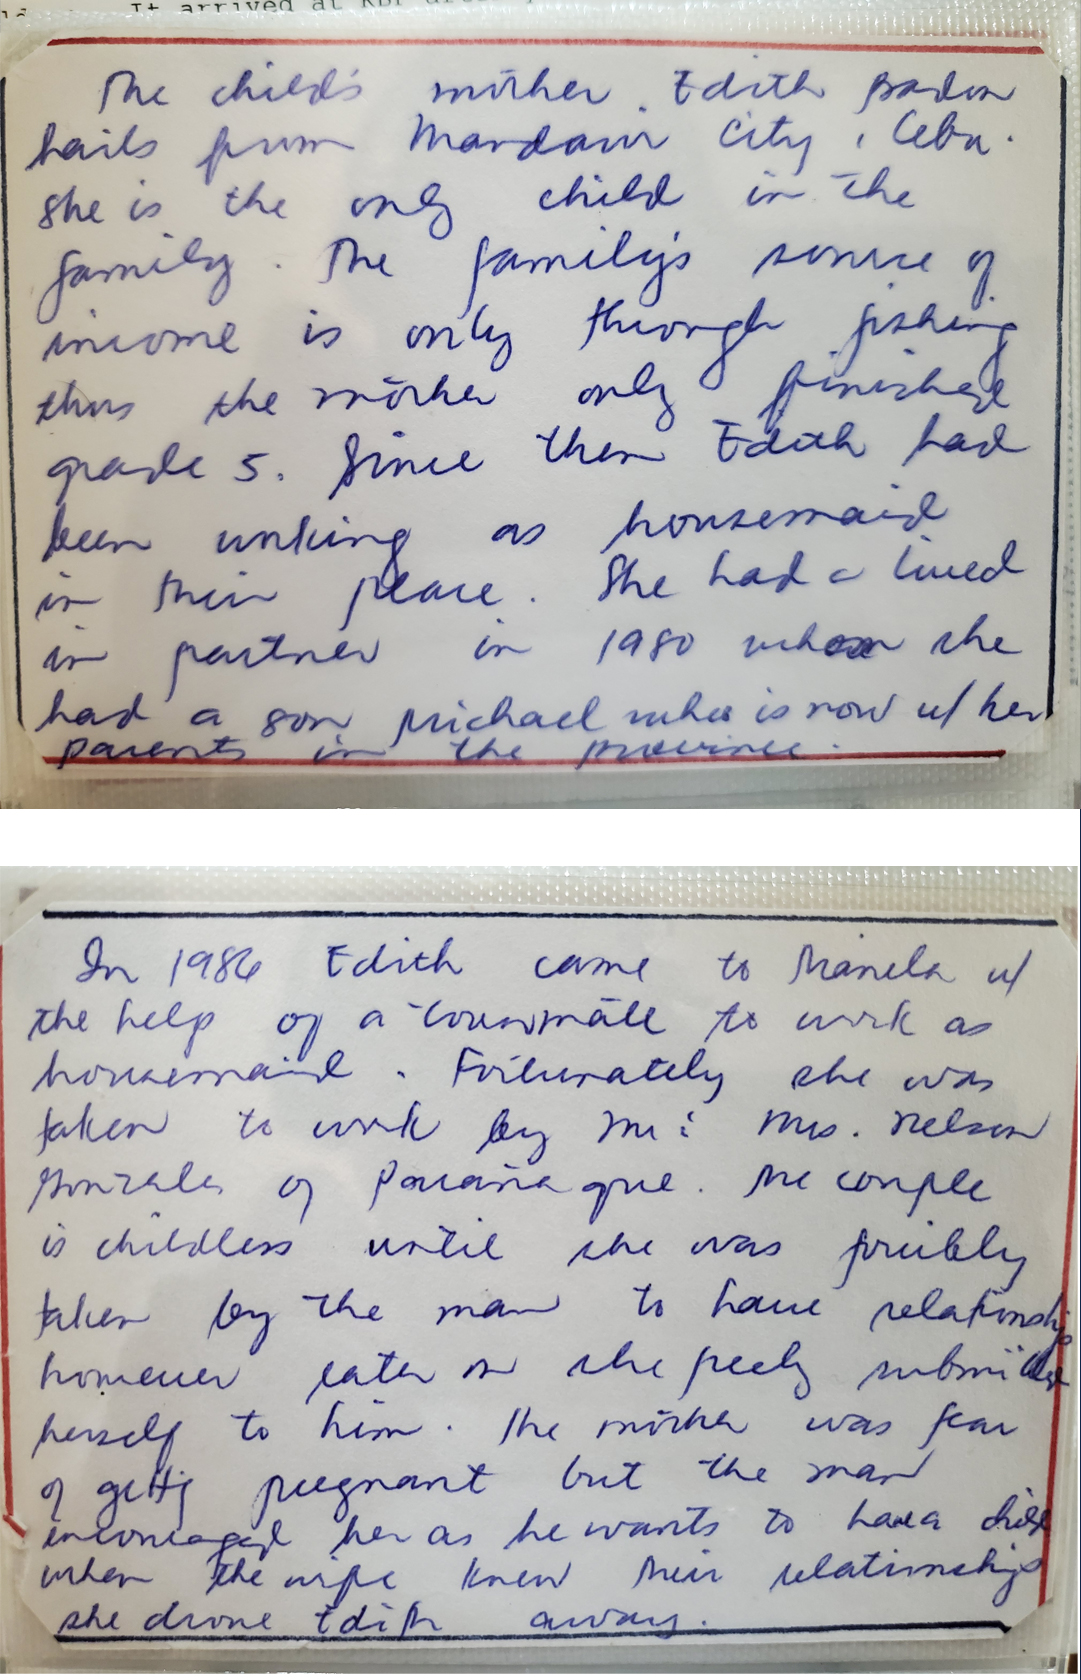 It arrived at RBF
The child's mother, Edith
hails from Mandaue City, Cebu.
She is the only child in the
family. The family's source of
income is only through fishing
thus the mother only finished
grade 5. Since then Edith had
been working as housemaid
in their place. She had a lived
in partner in 1980 whom she
had a son Michael who is now w/ her
parents in the province.
In 1986 Edith came to Manila w/
the help of a townmate to work as
housemaid. Fortunately she was
taken to work by Mr: Mrs. Nelson
Gonzales of Parañaque. The couple
is childless until she was forcibly
taken by the man to have relationship
however later on she freely submitted
herself to him. The mother was fear
of gettg pregnant but the man
encouraged her as he wants to have a child
when the wife knew their relationship
she drove Edith away.